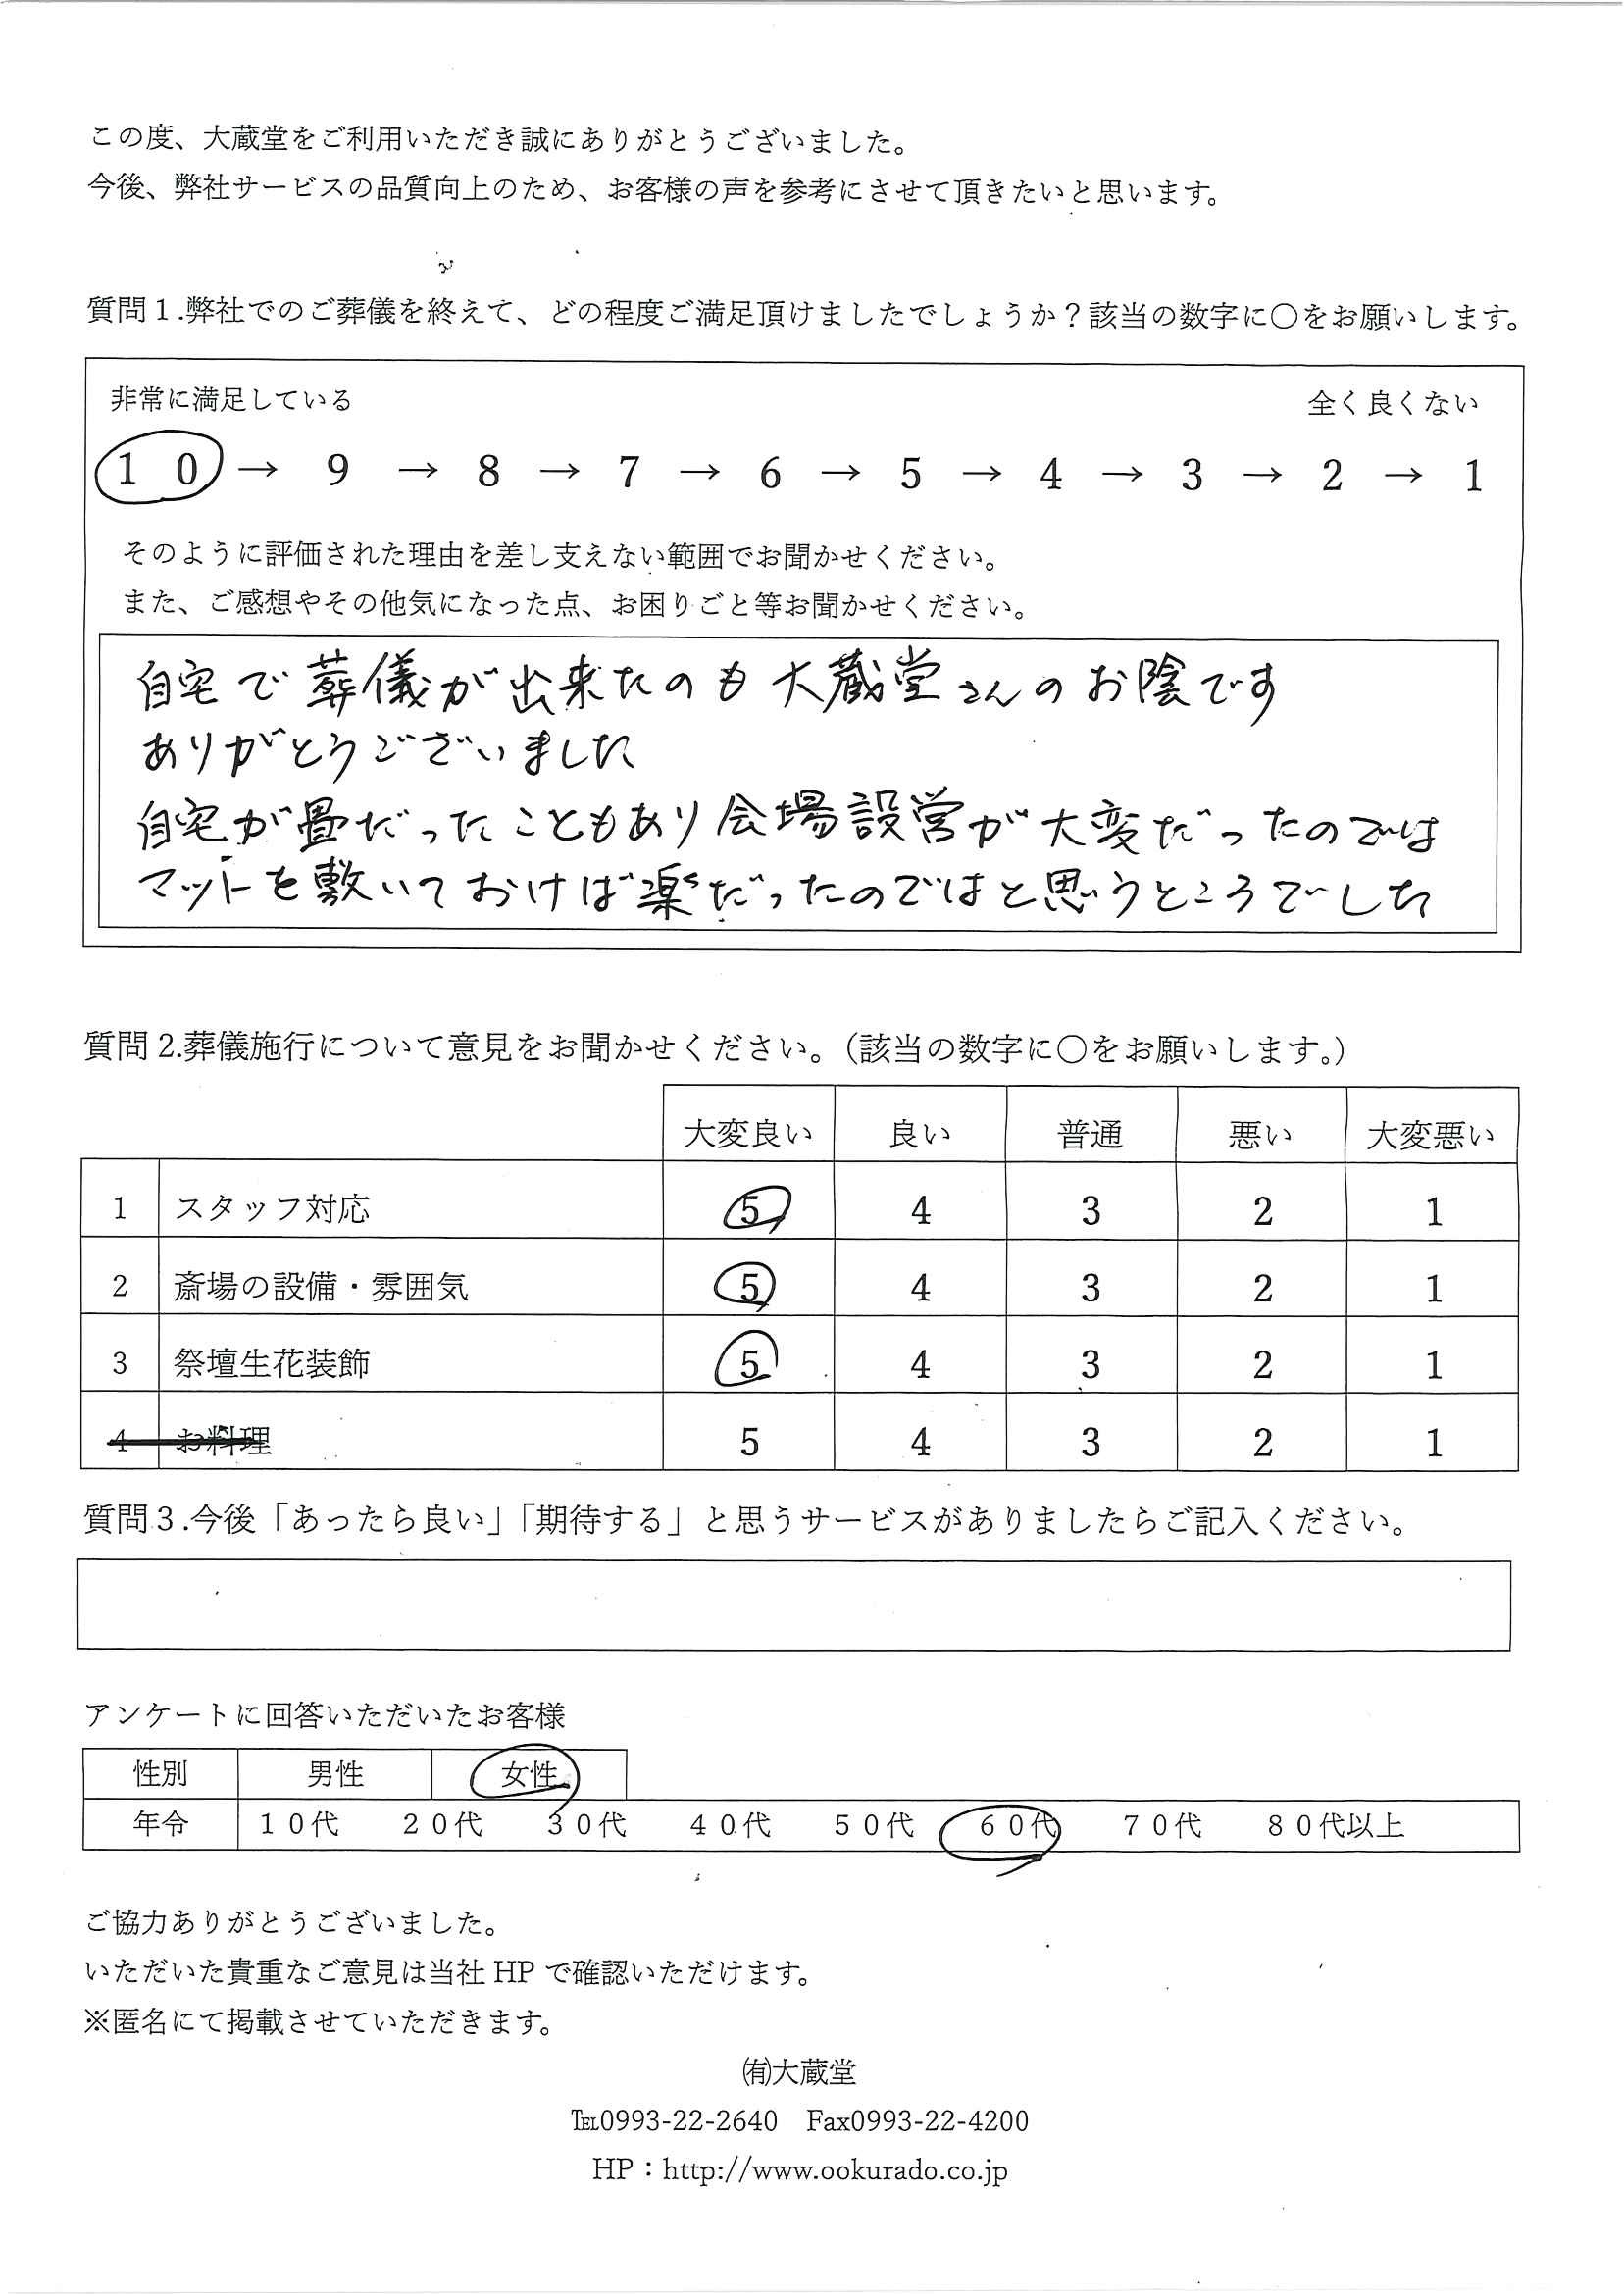 この度、大蔵堂をご利用いただき誠にありがとうございました。
今後、弊社サービスの品質向上のため、お客様の声を参考にさせて頂きたいと思います。
質問１.弊社でのご葬儀を終えて、どの程度ご満足頂けましたでしょうか？該当の数字に〇をお願いします。
非常に満足している 全く良くない
１０ → 9 → 8 → 7 → 6 → 5 → 4 → 3 → 2 → 1
そのように評価された理由を差し支えない範囲でお聞かせください。
また、ご感想やその他気になった点、お困りごと等お聞かせください。
自宅で葬儀が出来たのも大蔵堂さんのお陰です
ありがとうございました
自宅が畳だったこともあり会場設営が大変だったのでは
マットを敷いておけば楽だったのではと思うところでした
質問 2.葬儀施行について意見をお聞かせください。（該当の数字に〇をお願いします。）
大変良い 良い 普通 悪い 大変悪い
1 スタッフ対応 5 4 3 2 1
2 斎場の設備・雰囲気 5 4 3 2 1
3 祭壇生花装飾 5 4 3 2 1
4 お料理 5 4 3 2 1
質問３.今後「あったら良い」「期待する」と思うサービスがありましたらご記入ください。
アンケートに回答いただいたお客様
性別 男性 女性
年令 １０代 ２０代 ３０代 ４０代 ５０代 ６０代 ７０代 ８０代以上
ご協力ありがとうございました。
いただいた貴重なご意見は当社 HP で確認いただけます。
※匿名にて掲載させていただきます。
㈲大蔵堂
℡0993-22-2640 Fax0993-22-4200
HP：http://www.ookurado.co.jp